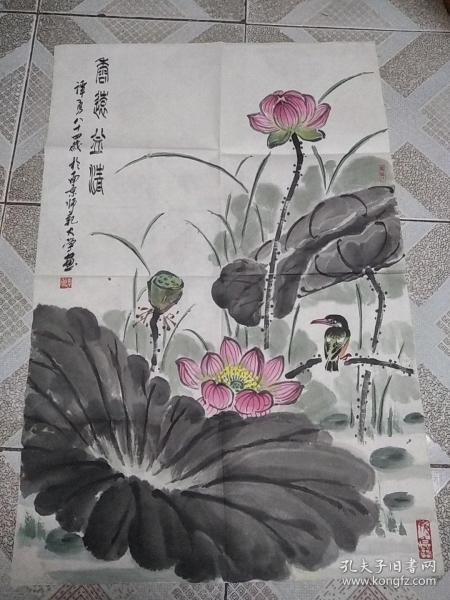 香远益清
谭勇八十四岁于南京师范大学画
孔夫子旧书网
www.kongfz.com